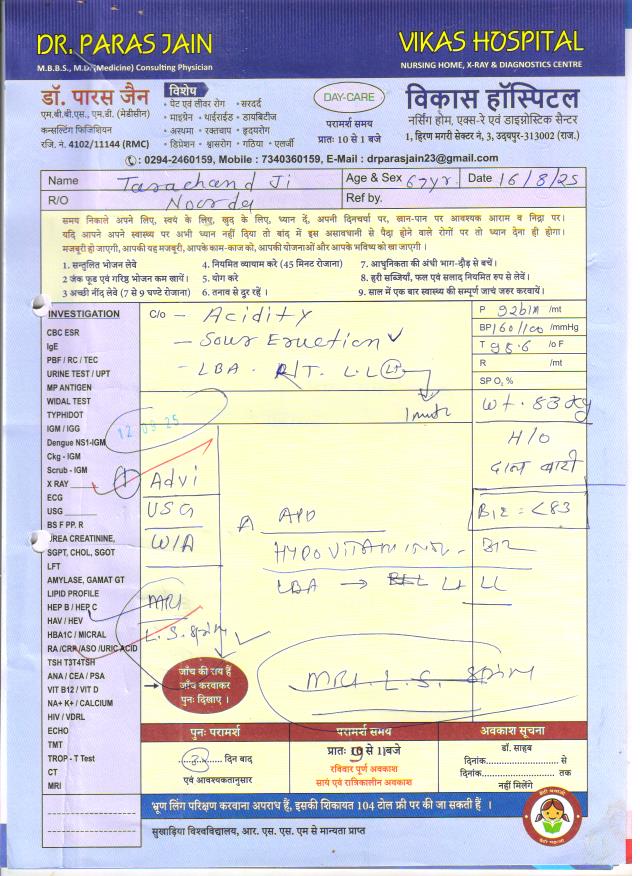 DR. PARAS JAIN
M.B.B.S., M.D. (Medicine) Consulting Physician
VIKAS HOSPITAL
NURSING HOME, X-RAY & DIAGNOSTICS CENTRE
डॉ. पारस जैन
एम.बी.बी.एस., एम.डी. (मेडीसीन)
कन्सल्टिंग फिजिशियन
रजि. नं. 4102/11144 (RMC)
विशेष
• पेट एवं लीवर रोग • सरदर्द
• माइग्रेन • थाईराईड • डायबिटीज
• अस्थमा • रक्तचाप • हृदयरोग
• डिप्रेशन • श्वासरोग • गठिया • एलर्जी
DAY-CARE
परामर्श समय
प्रातः 10 से 1 बजे
विकास हॉस्पिटल
नर्सिंग होम, एक्स-रे एवं डाइग्नोस्टिक सैन्टर
1, हिरण मगरी सेक्टर नं. 3, उदयपुर-313002 (राज.)
: 0294-2460159, Mobile : 7340360159, E-Mail : drparasjain23@gmail.com
Name Tarachand Ji Age & Sex 67yr. Date 16/8/25
R/O Noorda Ref by.
समय निकाले अपने लिए, स्वयं के लिए, खुद के लिए, ध्यान दें, अपनी दिनचर्या पर, खान-पान पर आवश्यक आराम व निद्रा पर।
यदि आपने अपने स्वास्थ्य पर अभी ध्यान नहीं दिया तो बाद में इस असावधानी से पैदा होने वाले रोगों पर तो ध्यान देना ही होगा।
मजबूरी हो जाएगी, आपकी यह मजबूरी, आपके काम-काज को, आपकी योजनाओं और आपके भविष्य को खा जाएगी।
1. सन्तुलित भोजन लेवे 4. नियमित व्यायाम करे (45 मिनट रोजाना) 7. आधुनिकता की अंधी भाग-दौड़ से बचें।
2 जंक फूड एवं गरिष्ठ भोजन कम खायें। 5. योग करे 8. हरी सब्जियाँ, फल एवं सलाद नियमित रुप से लेवें।
3 अच्छी नींद लेवे (7 से 9 घण्टे रोजाना) 6. तनाव से दूर रहें । 9. साल में एक बार स्वास्थ्य की सम्पूर्ण जाचं जरुर करवायें।
INVESTIGATION
CBC ESR
IgE
PBF / RC / TEC
URINE TEST / UPT
MP ANTIGEN
WIDAL TEST
TYPHIDOT
IGM / IGG
Dengue NS1-IGM
Ckg - IGM
Scrub - IGM
X RAY
ECG
USG
BS F PP. R
UREA CREATININE,
SGPT, CHOL, SGOT
LFT
AMYLASE, GAMAT GT
LIPID PROFILE
HEP B / HEP C
HAV / HEV
HBA1C / MICRAL
RA /CRP /ASO /URIC ACID
TSH T3T4TSH
ANA / CEA / PSA
VIT B12 / VIT D
NA+ K+ / CALCIUM
HIV / VDRL
ECHO
TMT
TROP - T Test
CT
MRI
C/o - Acidity
- Sour Eruction
- LBA. R/T. L.L
P 92b1m /mt
BP 160/100 /mmHg
T 98.6 /o F
R /mt
SP O2 %
Wt. 83 kg
H/O
B12 = <83
12 08 25
Advi
USG
W/A
MRI
L.S. स्पाइन
A APD
HYPOVITAMINO. - B12
LBA → Lt LL
MRI. L.S. स्पाइन
जाँच की राय हैं
जाँच करवाकर
पुनः दिखाए ।
पुनः परामर्श
दिन बाद
एवं आवश्यकतानुसार
परामर्श समय
प्रातः 9 से 1 बजे
रविवार पूर्ण अवकाश
सायं एवं रात्रिकालीन अवकाश
अवकाश सूचना
डॉ. साहब
दिनांक............ से
दिनांक............ तक
नहीं मिलेंगे
भ्रूण लिंग परिक्षण करवाना अपराध हैं, इसकी शिकायत 104 टोल फ्री पर की जा सकती हैं ।
सुखाड़िया विश्वविद्यालय, आर. एस. एस. एम से मान्यता प्राप्त